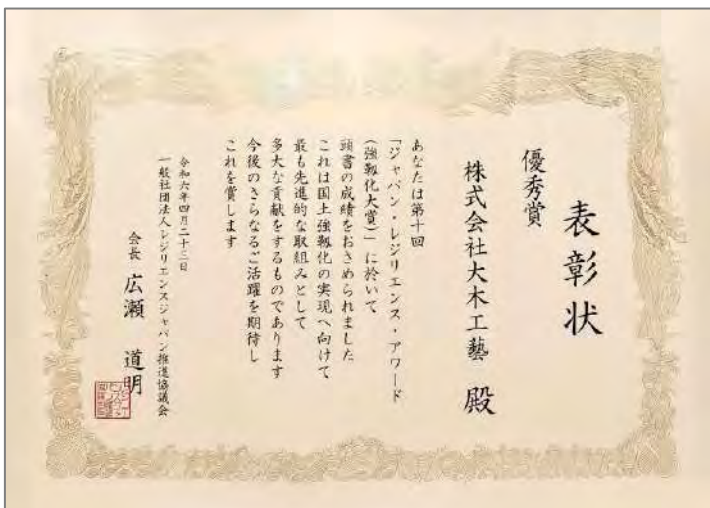 表彰状
優秀賞
株式会社大木工藝 殿
あなたは第十回
「ジャパン・レジリエンス・アワード
（強靱化大賞）」に於いて
頭書の成績をおさめられました
これは国土強靱化の実現へ向けて
最も先進的な取組みとして
多大な貢献をするものであります
今後のさらなるご活躍を期待し
これを賞します
令和六年四月二十三日
一般社団法人レジリエンスジャパン推進協議会
会長 広瀬 道明